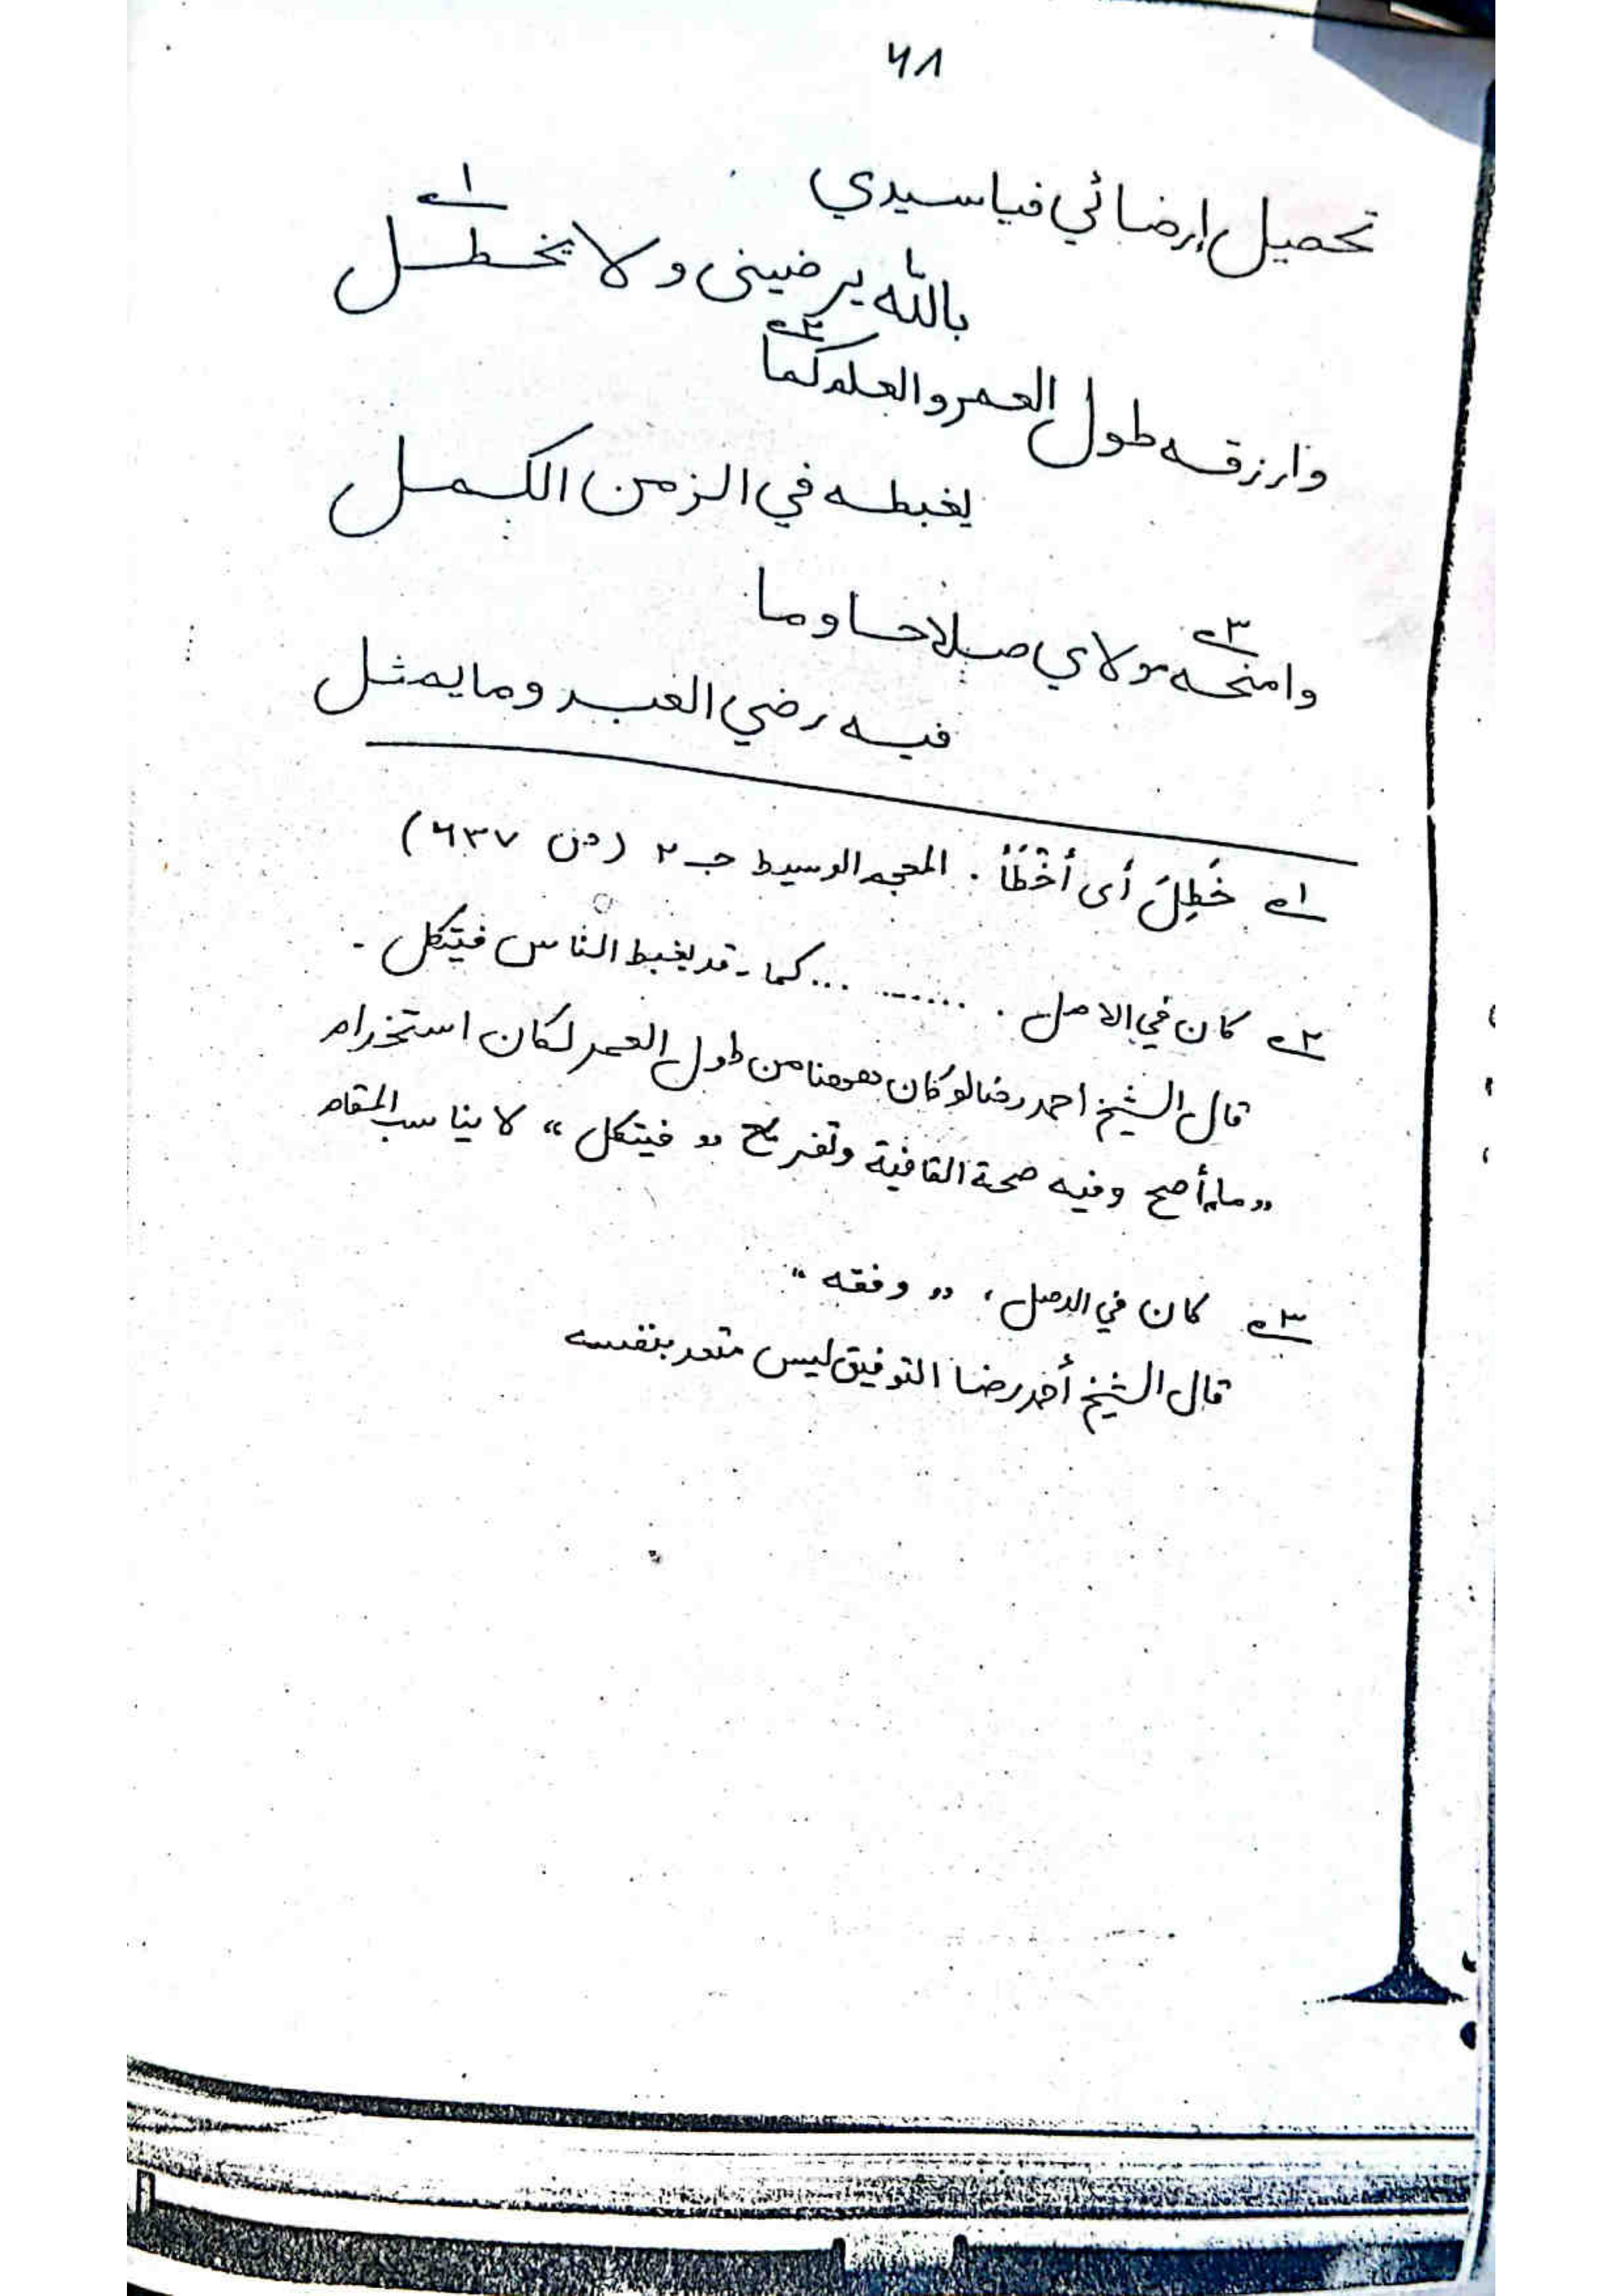 ۶۸
تحصيل إرضائي فيا سيدي
۱ے
بالله يرضينى ولا يخطل
وارزقه طول العمر والعلم كما ۲ے
يغبطه في الزمن الكمل
وامنحه ۳ے مولاي صلاحا وما
فيه رضي العبد وما يمثل
۱ے خَطِلَ أى أخْطَأَ . المعجم الوسيط جـ ۲ (ص ۶۳۷)
۲ے كان في الاصل . .......... ... كما - قد يغبط الناس فيتكل -
قال الشيخ احمد رضا لو كان من طول العمر لكان استخدام
„ما„ أصح وفيه صحة القافية وتفريع „ فيتكل “ لا يناسب المقام
۳ے كان في الاصل ، „ وفقه “
قال الشيخ أحمد رضا التوفيق ليس متعد بنفسه